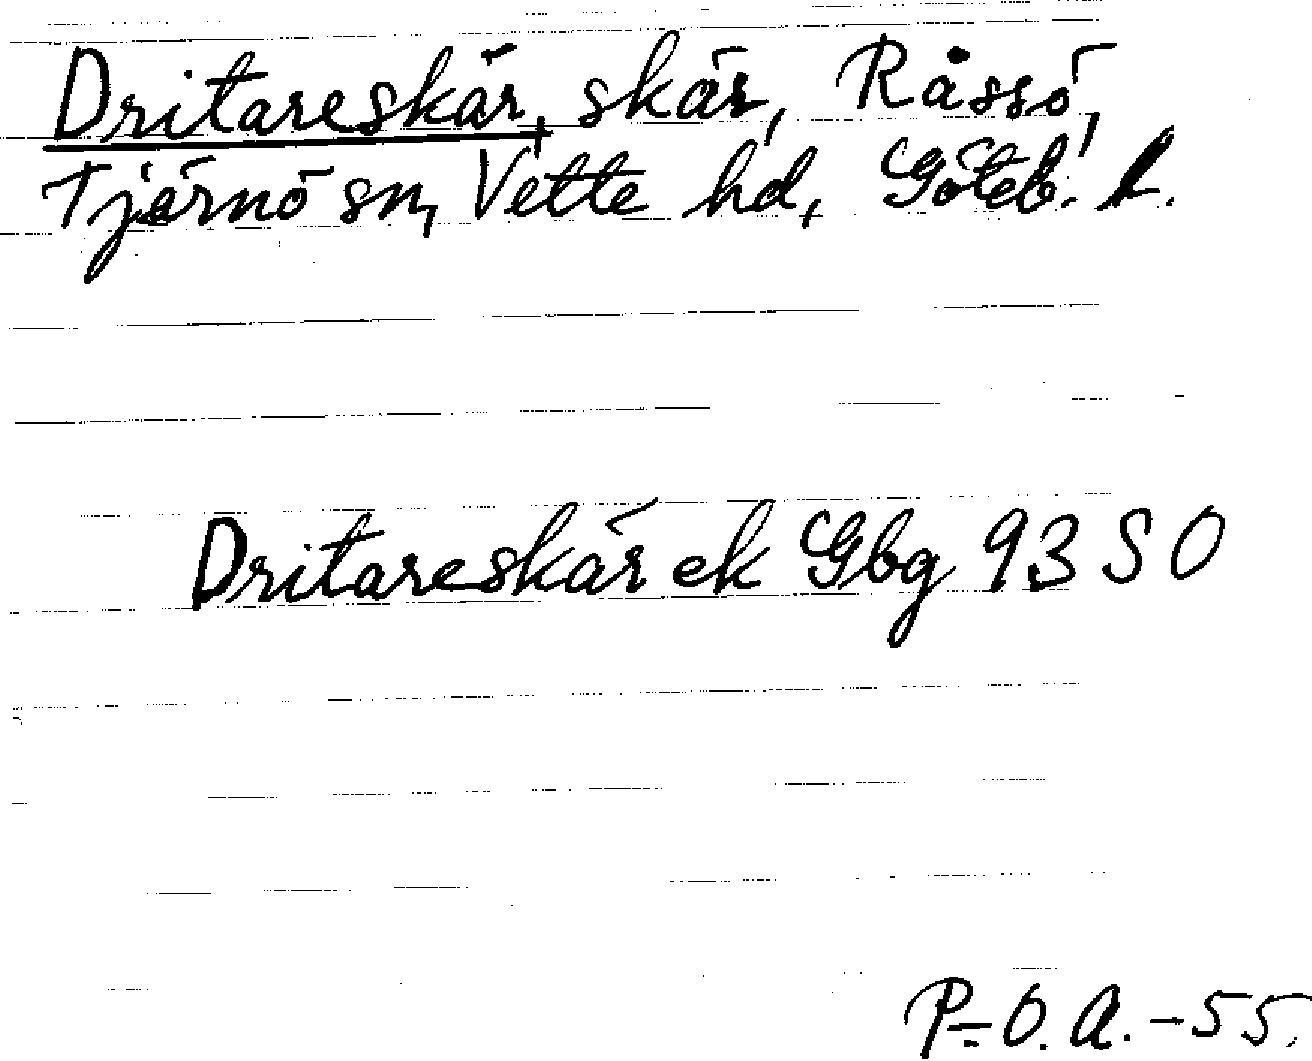 Dritareskär, skär, Råssö,
Tjärnö sn, Vette hd, Göteb. l.
Dritareskär ek Gbg 93 SO
P-O. A. -55.